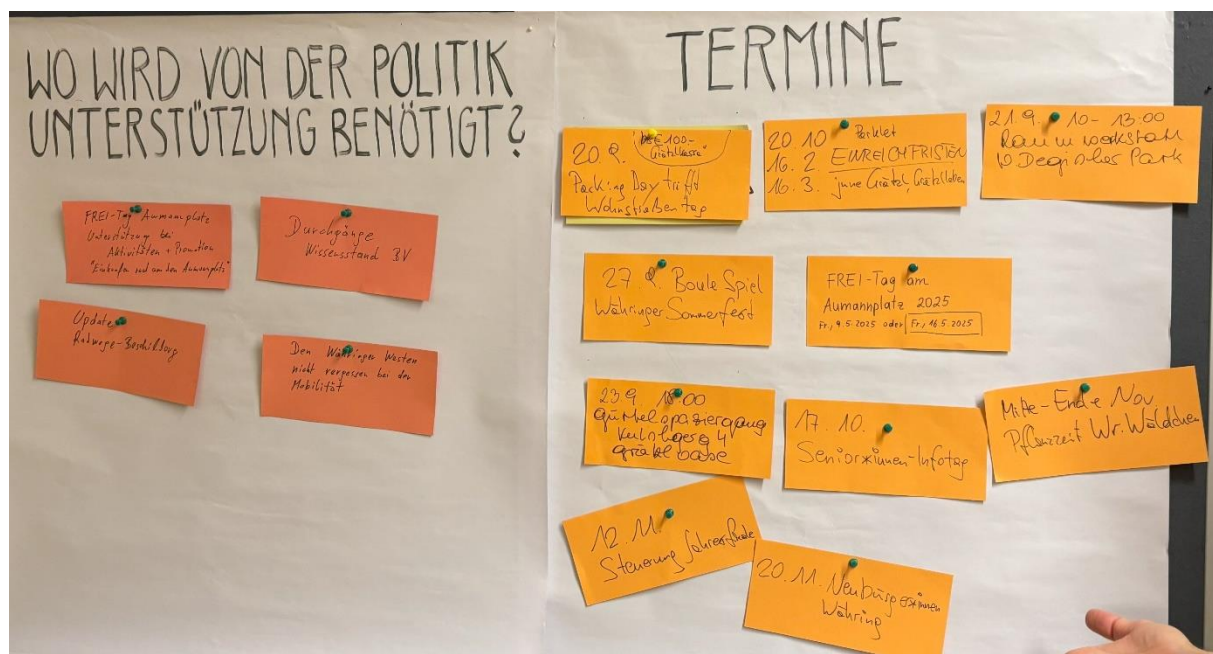 WO WIRD VON DER POLITIK
UNTERSTÜTZUNG BENÖTIGT?
FREI-Tag Aumannplatz
Unterstützung bei
Aktivitäten + Promotion
"Einkaufen rund um den Aumannplatz"
Durchgänge
Wissensstand BV
Update
Radwege-Beschilderg
Den Währinger Westen
nicht vergessen bei der
Mobilität
TERMINE
€100-
Grätzlkassa"
20. 9.
Parking Day trifft
Wohnstraßentag
20. 10 Parklet
16. 2. EINREICHFRISTEN
16. 3. junge Grätzl, Grätzllabor
21. 9. 10 - 13:00
Raumwerkstatt
Park
27. 9. Boule Spiel
Währinger Sommerfest
FREI-Tag am
Aumannplatz 2025
Fr, 9.5.2025 oder Fr, 16.5.2025
23 9. 18:00
gürtelspaziergang
4
grätzlbase
17. 10.
Senior*innen-Infotag
Mitte-Ende Nov
Pflanzzeit Wr. Wäldchen
12. 11.
Steuerung
20. 11. Neubürger*innen
Währing